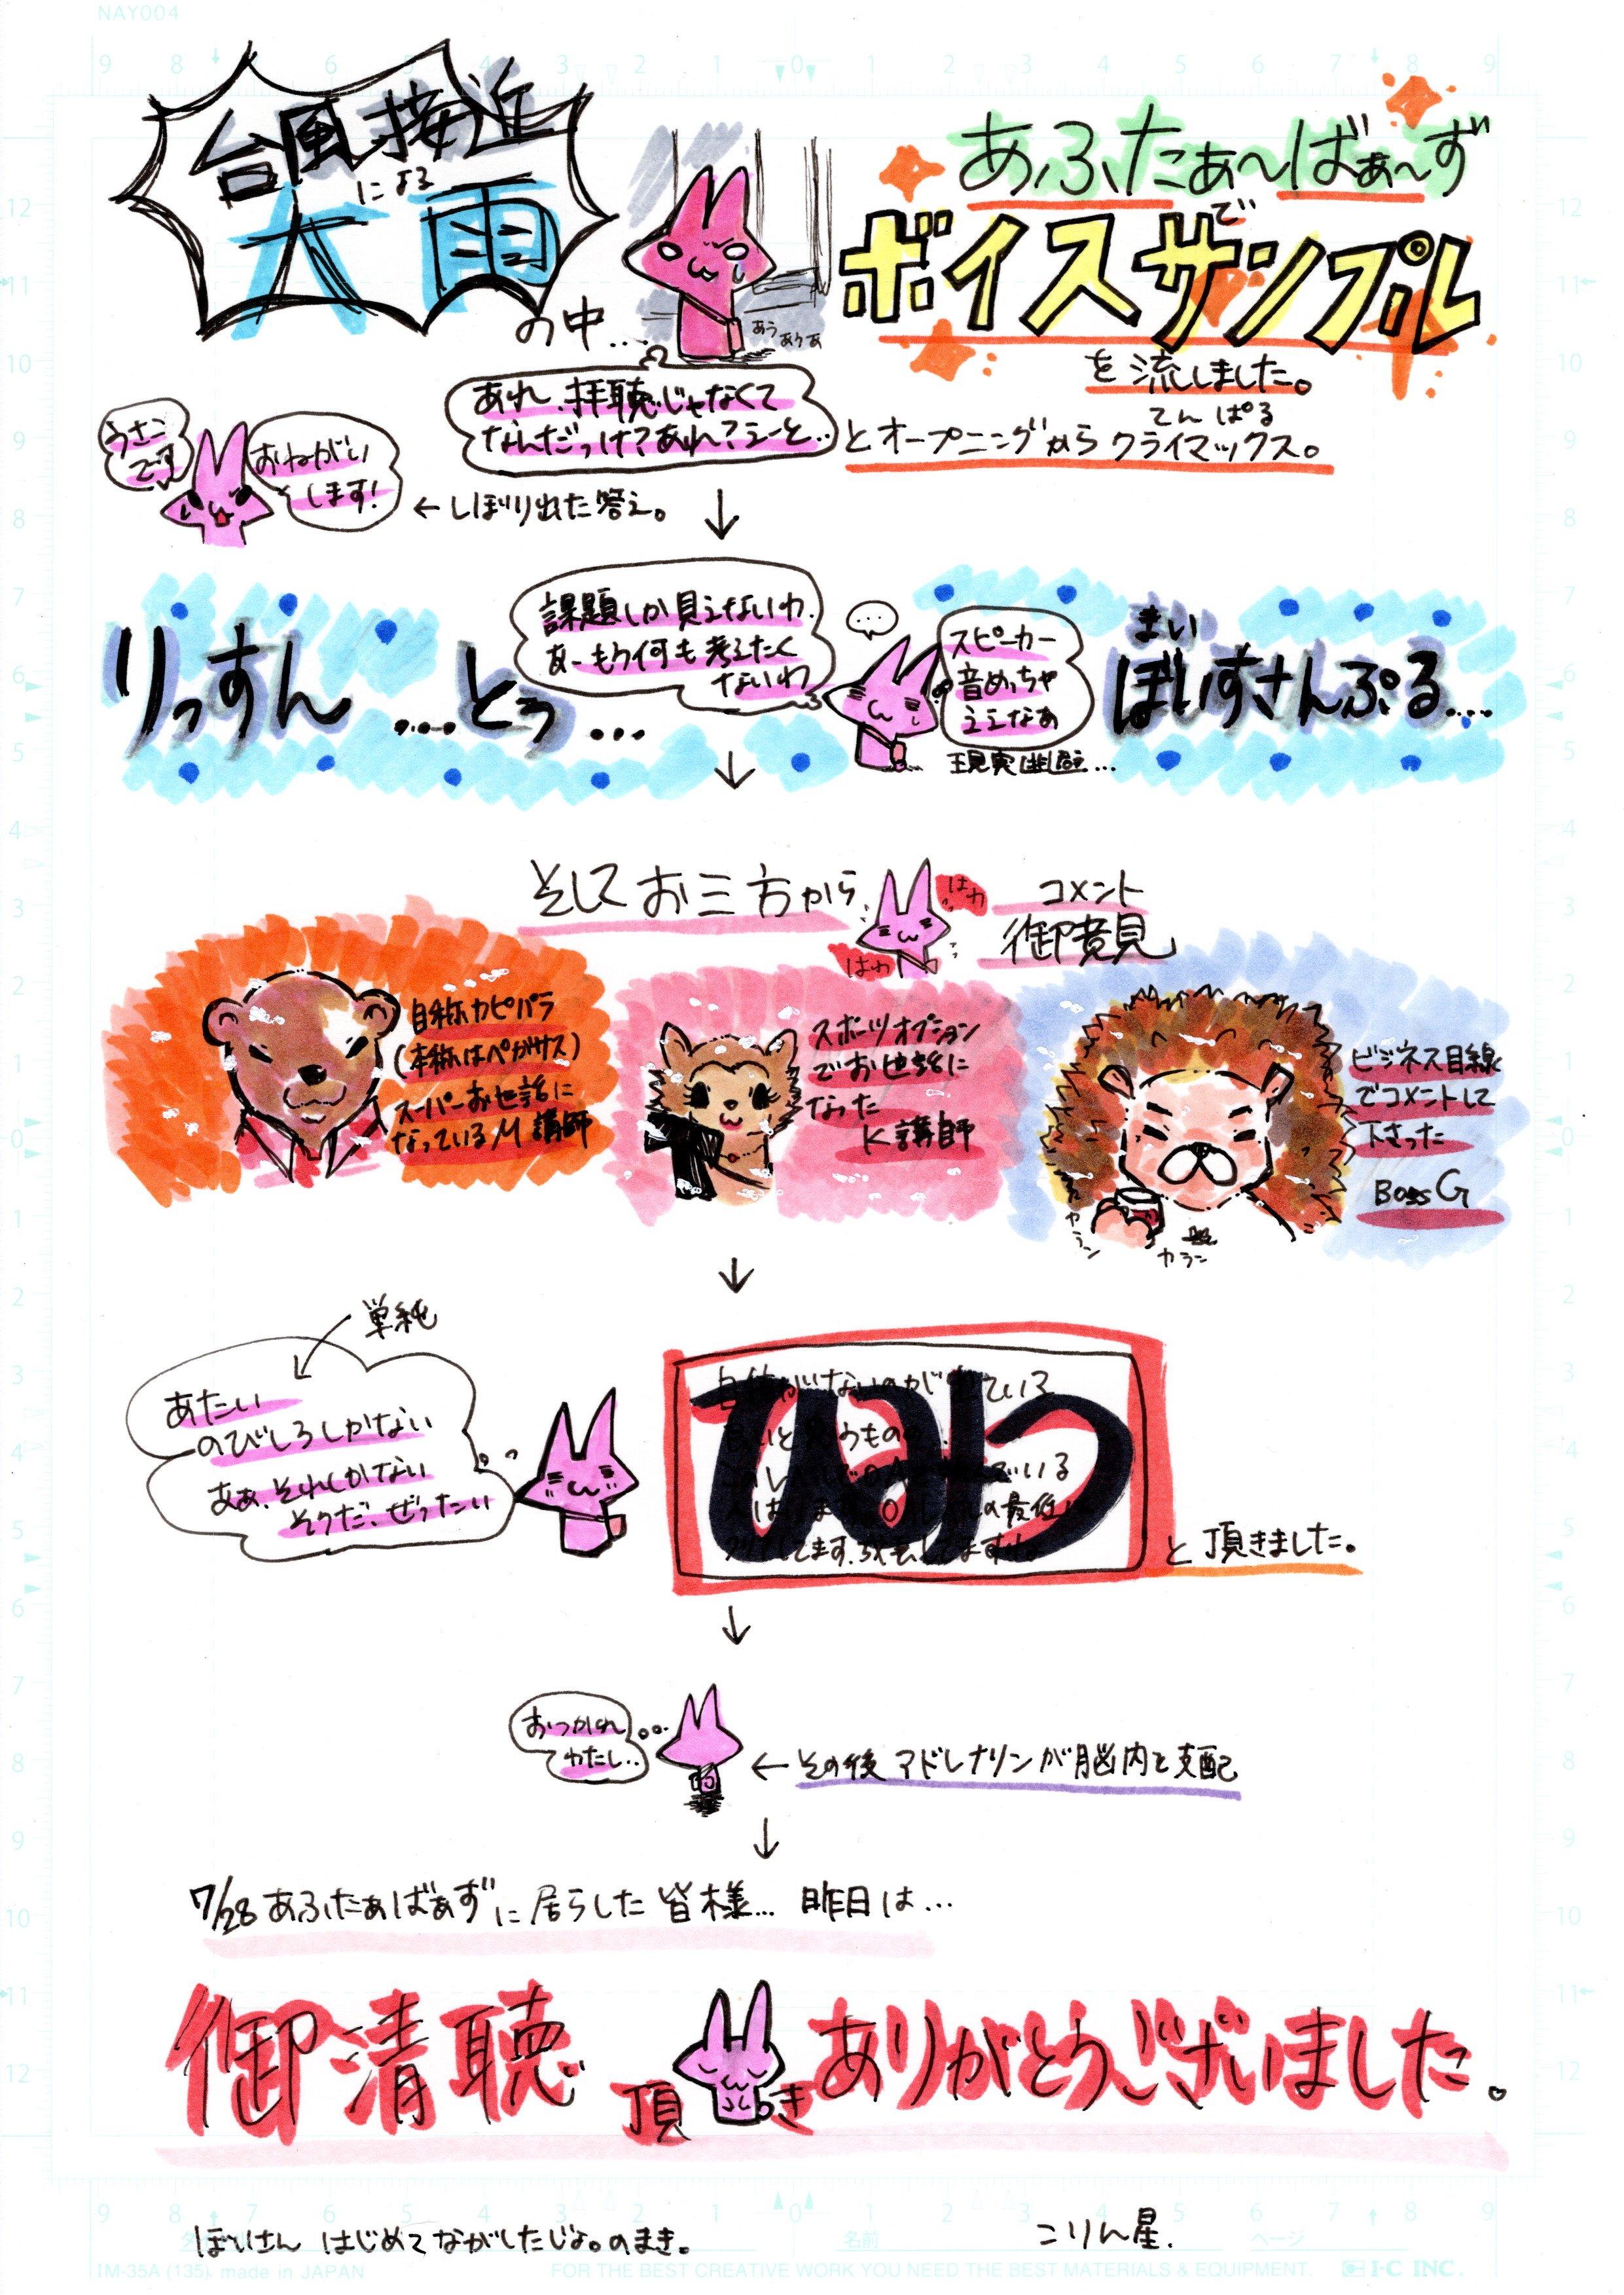 NAY004
台風接近
による
大雨
の中…
あう
あうあ
あふたぁ〜ばぁ〜ず
で
ボイスサンプル
を流ししました。
あれ、拝聴じゃなくて
なんだっけ?あれ?えーと..
てんぱる
とオープニングからクライマックス。
うさこ
です
おねがい
します!
←しぼり出た答え。
↓
りっすん ....とぅ...
課題しか見えないわ
あーもう何も考えたく
ないわ
...
スピーカー
音めっちゃ
ええなあ
現実逃避...
まい
ぼいすさんぷる....
↓
そしてお三方から
はわ
はわ
コメント
御意見
自称カピバラ
(本称はペガサス)
スーパーお世話に
なっているM講師
スポーツオプション
でお世話に
なった
K講師
ビジネス目線
でコメントして
下さった
Boss G
カラン
カラン
↓
単純
あたい
のびしろしかない
あぁ、それしかない
そうだ、ぜったい
ひみつ
と頂きました。
↓
おつかれ
わたし..
←その後アドレナリンが脳内を支配
↓
7/28 あふたぁばぁずに居らした皆様... 昨日は...
御清聴 頂き ありがとうございました。
ぼいさん はじめてながしたじょ。のまき。
こりん星.
名前
ページ
IM-35A (135) made in JAPAN
FOR THE BEST CREATIVE WORK YOU NEED THE BEST MATERIALS & EQUIPMENT.
I·C INC.